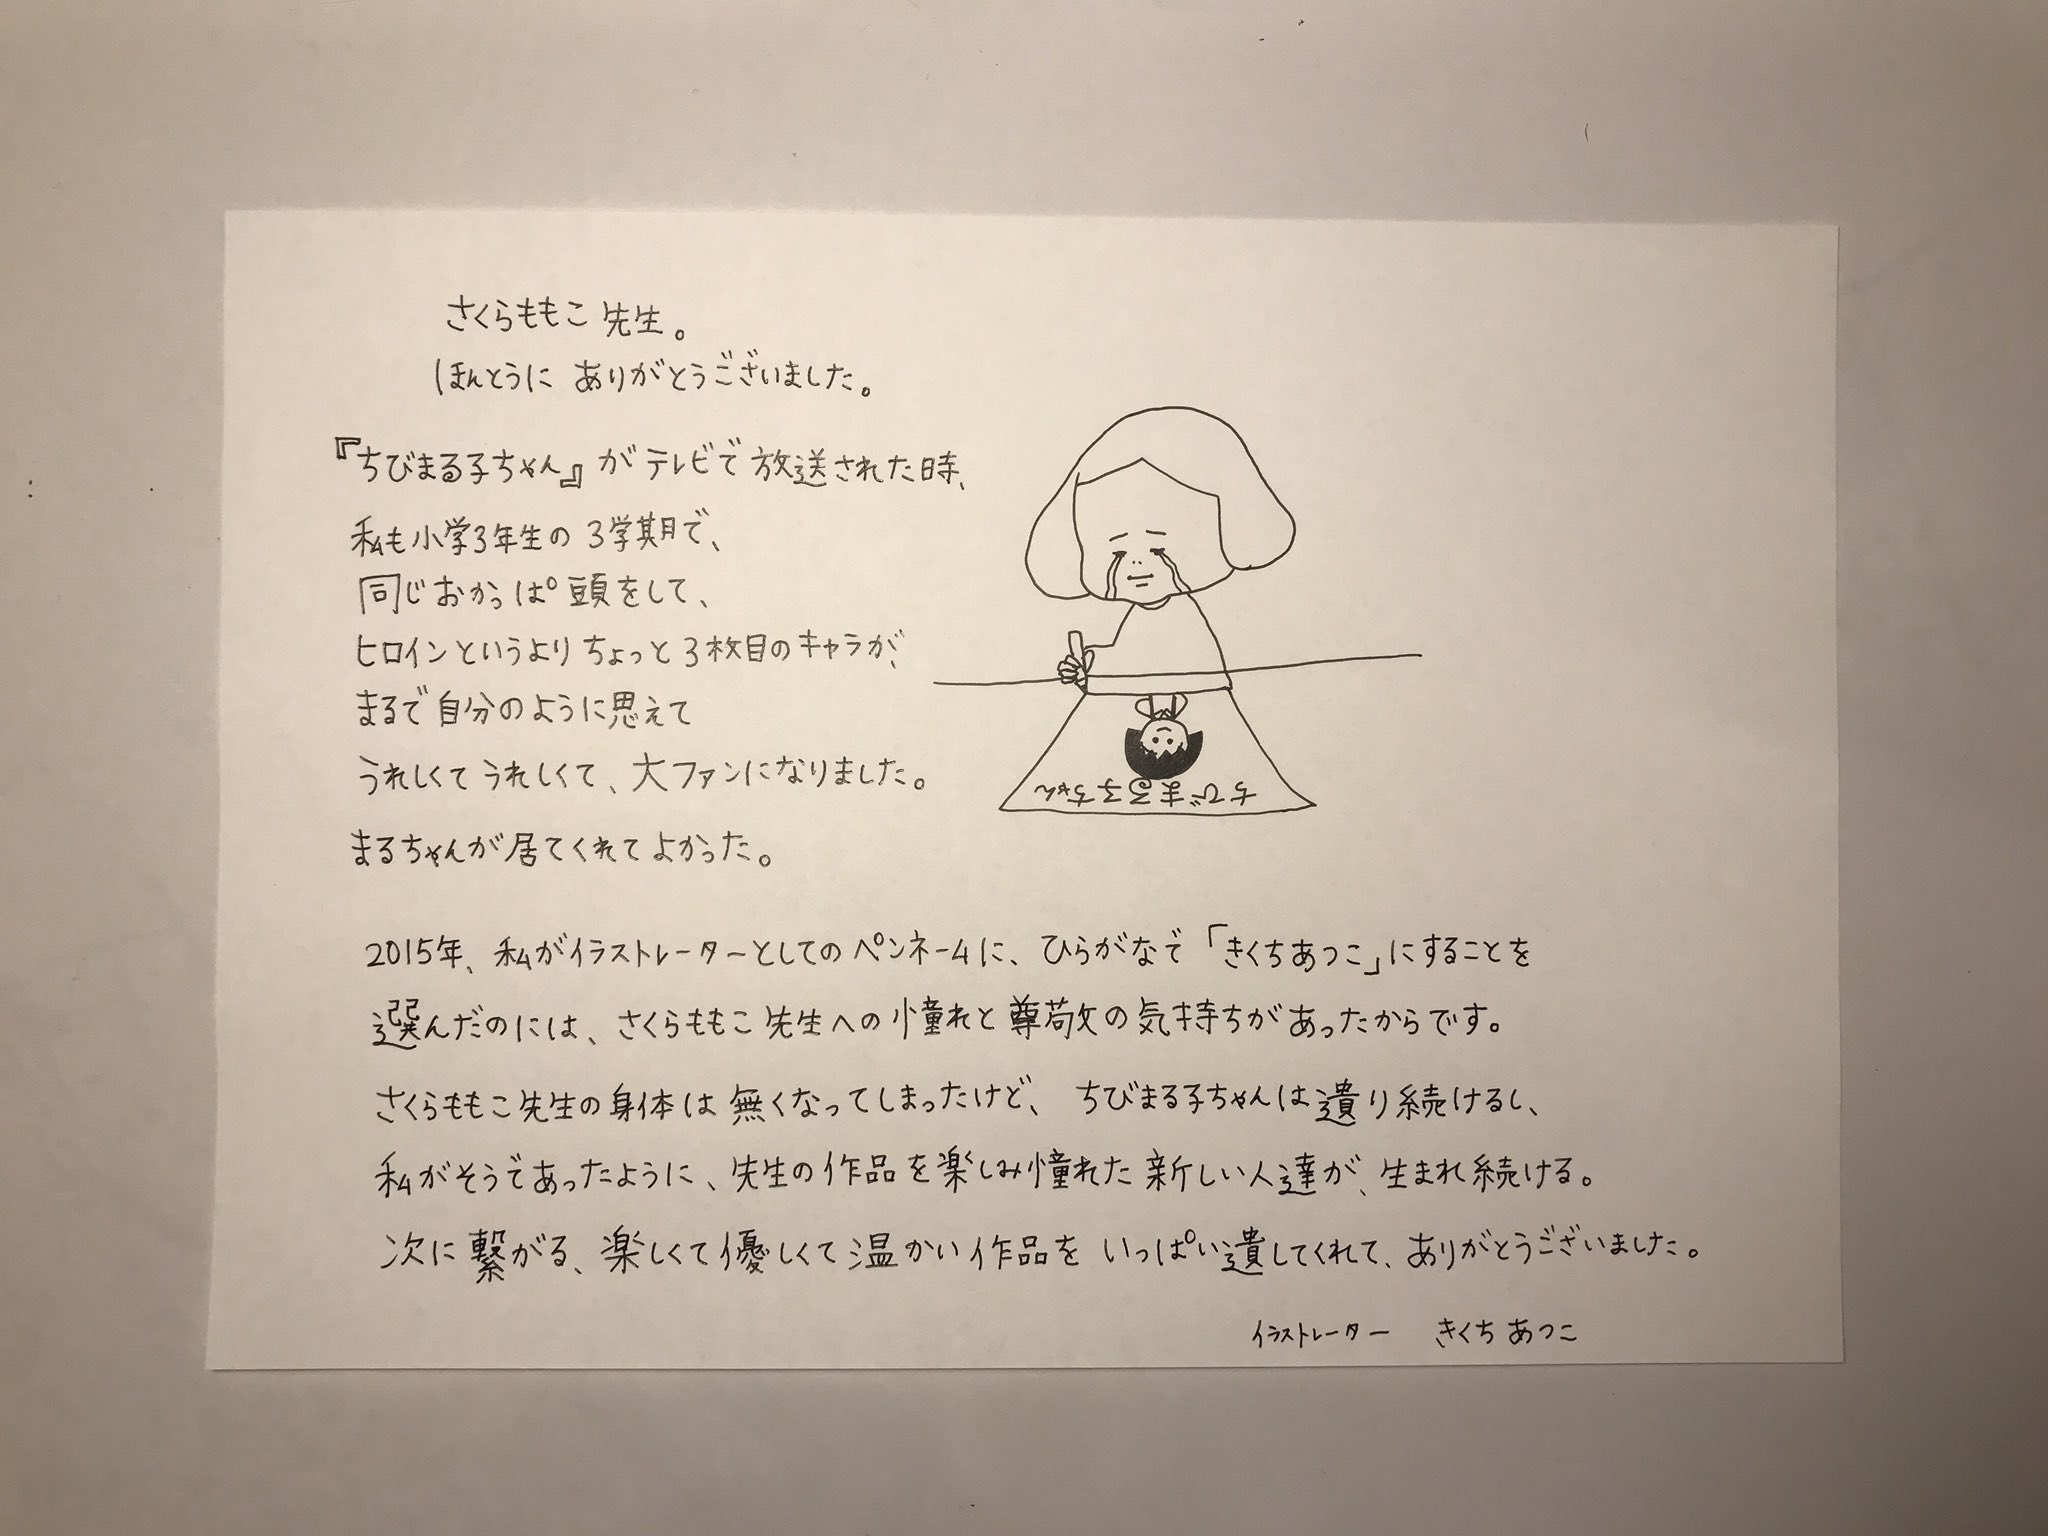 さくらももこ 先生。
ほんとうに ありがとうございました。
『ちびまる子ちゃん』がテレビで放送された時、
私も小学3年生の3学期で、
同じおかっぱ頭をして、
ヒロインというよりちょっと3枚目のキャラが、
まるで自分のように思えて
うれしくてうれしくて、大ファンになりました。
まるちゃんが居てくれてよかった。
ちびまる子ちゃん
2015年、私がイラストレーターとしてのペンネームに、ひらがなで「きくちあつこ」にすることを
選んだのには、さくらももこ先生への憧れと尊敬の気持ちがあったからです。
さくらももこ先生の身体は無くなってしまったけど、ちびまる子ちゃんは遺り続けるし、
私がそうであったように、先生の作品を楽しみ憧れた新しい人達が、生まれ続ける。
次に繋がる、楽しくて優しくて温かい作品を いっぱい遺してくれて、ありがとうございました。
イラストレーター きくちあつこ